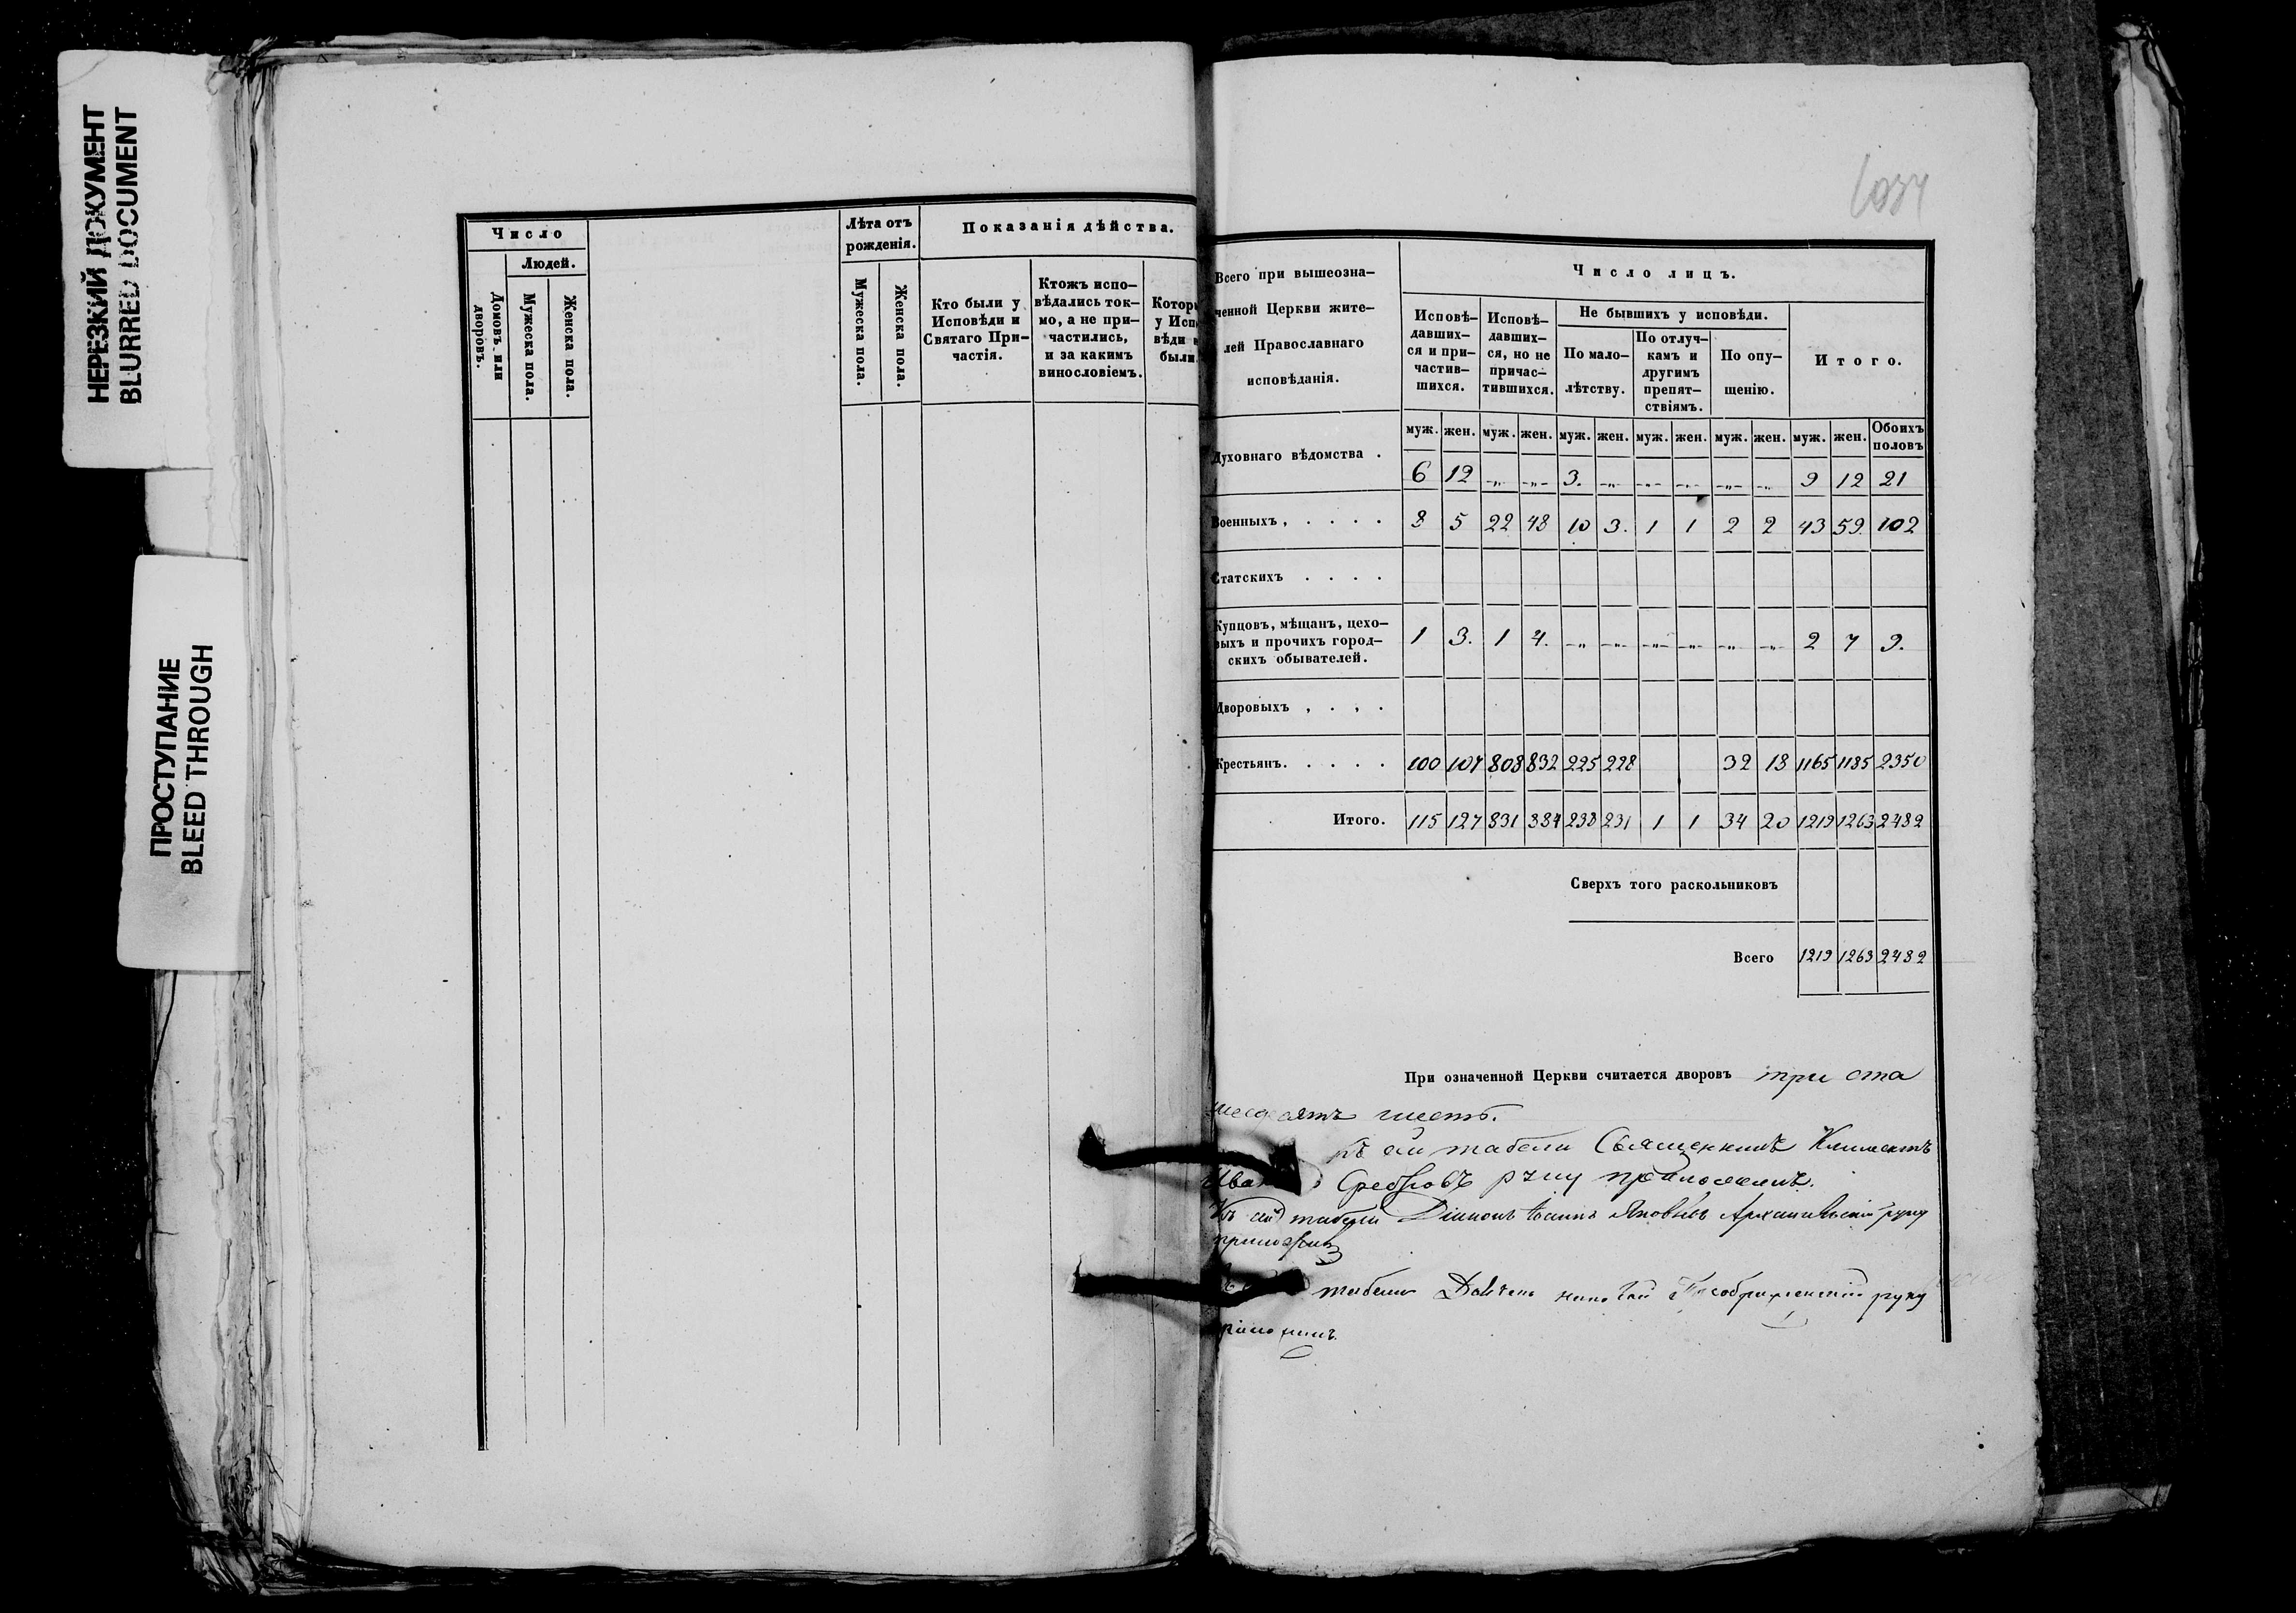 НЕРЕЗКИЙ ДОКУМЕНТ
BLURRED DOCUMENT
ПРОСТУПАНИЕ
BLEED THROUGH
Число
Людей.
Домовъ или дворовъ.
Мужеска пола.
Женска пола.
Лѣта отъ рожденія.
Мужеска пола.
Женска пола.
Показанія дѣйства.
Кто были у Исповѣди и Святаго При-
частія.
Ктожъ испо-
вѣдались ток-
мо, а не при-
частились,
и за какимъ
винословіемъ.
Котор
у Исп
вѣди
были
Всего при вышеозна-
ченной Церкви жите-
лей Православнаго
исповѣданія.
Число лицъ.
Исповѣ-
давших-
ся и при-
частив-
шихся.
Исповѣ-
давших-
ся, но не
причас-
тившихся.
Не бывшихъ у исповѣди.
По мало-
лѣтству.
По отлуч-
камъ и
другимъ
препят-
ствіямъ.
По опу-
щенію.
Итого.
муж. жен. муж. жен. муж. жен. муж. жен. муж. жен. муж. жен. Обоихъ половъ
Духовнаго вѣдомства . 6 12 -„- -„- 3. -„- -„- -„- -„- -„- 9 12 21
Военныхъ , . . . . 8 5 22 48 10 3. 1 1 2 2 43 59. 102
Статскихъ . . . .
Купцовъ, мѣщанъ, цехо-
выхъ и прочихъ город-
скихъ обывателей. 1 3. 1 4. -„- -„- -„- -„- -„- -„- 2 7 9.
Дворовыхъ , . , .
Крестьянъ. . . . . 100 107 808 832 225 228 32 18 1165 1185 2350
Итого. 115 127 831 884 238 231 1 1 34 20 1219 1263 2482
Сверхъ того раскольниковъ
Всего 1219 1263 2482
При означенной Церкви считается дворовъ три ста
шесдесятъ шесть.
къ сей табели Священникъ Климентъ
Сребровъ руку приложилъ.
Къ сей табели Діаконъ Іоаннъ Архангельскій руку
приложилъ
табели Преображенскій руку
приложилъ.